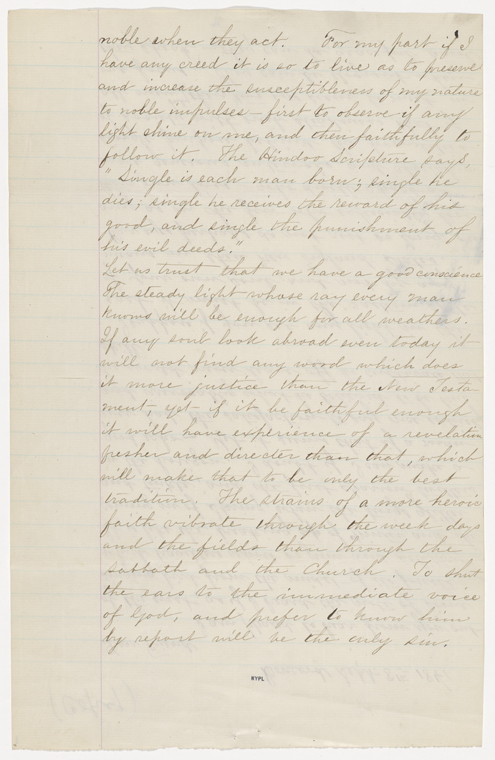 noble when they act. For my part if I
have any creed it is so to live as to preserve
and increase the susceptibleness of my nature
to noble impulses – first to observe if any
light shine on me, and then faithfully to
follow it. The Hindoo Scripture says,
"Single is each man born; single he
dies; single he receives the reward of his
good, and single the punishment of
his evil deeds."
Let us trust that we have a good conscience
The steady light whose ray every man
knows will be enough for all weathers.
If any soul look abroad even today it
will not find any word which does
it more justice than the New Testa
ment, yet if it be faithful enough
it will have experience of a revelation
fresher and directer than that, which
will make that to be only the best
tradition. The strains of a more heroic
faith vibrate through the week days
and the fields than through the
Sabbath and the Church. To shut
the ears to the immediate voice
of God, and prefer to know him
by report will be the only sin.
NYPL